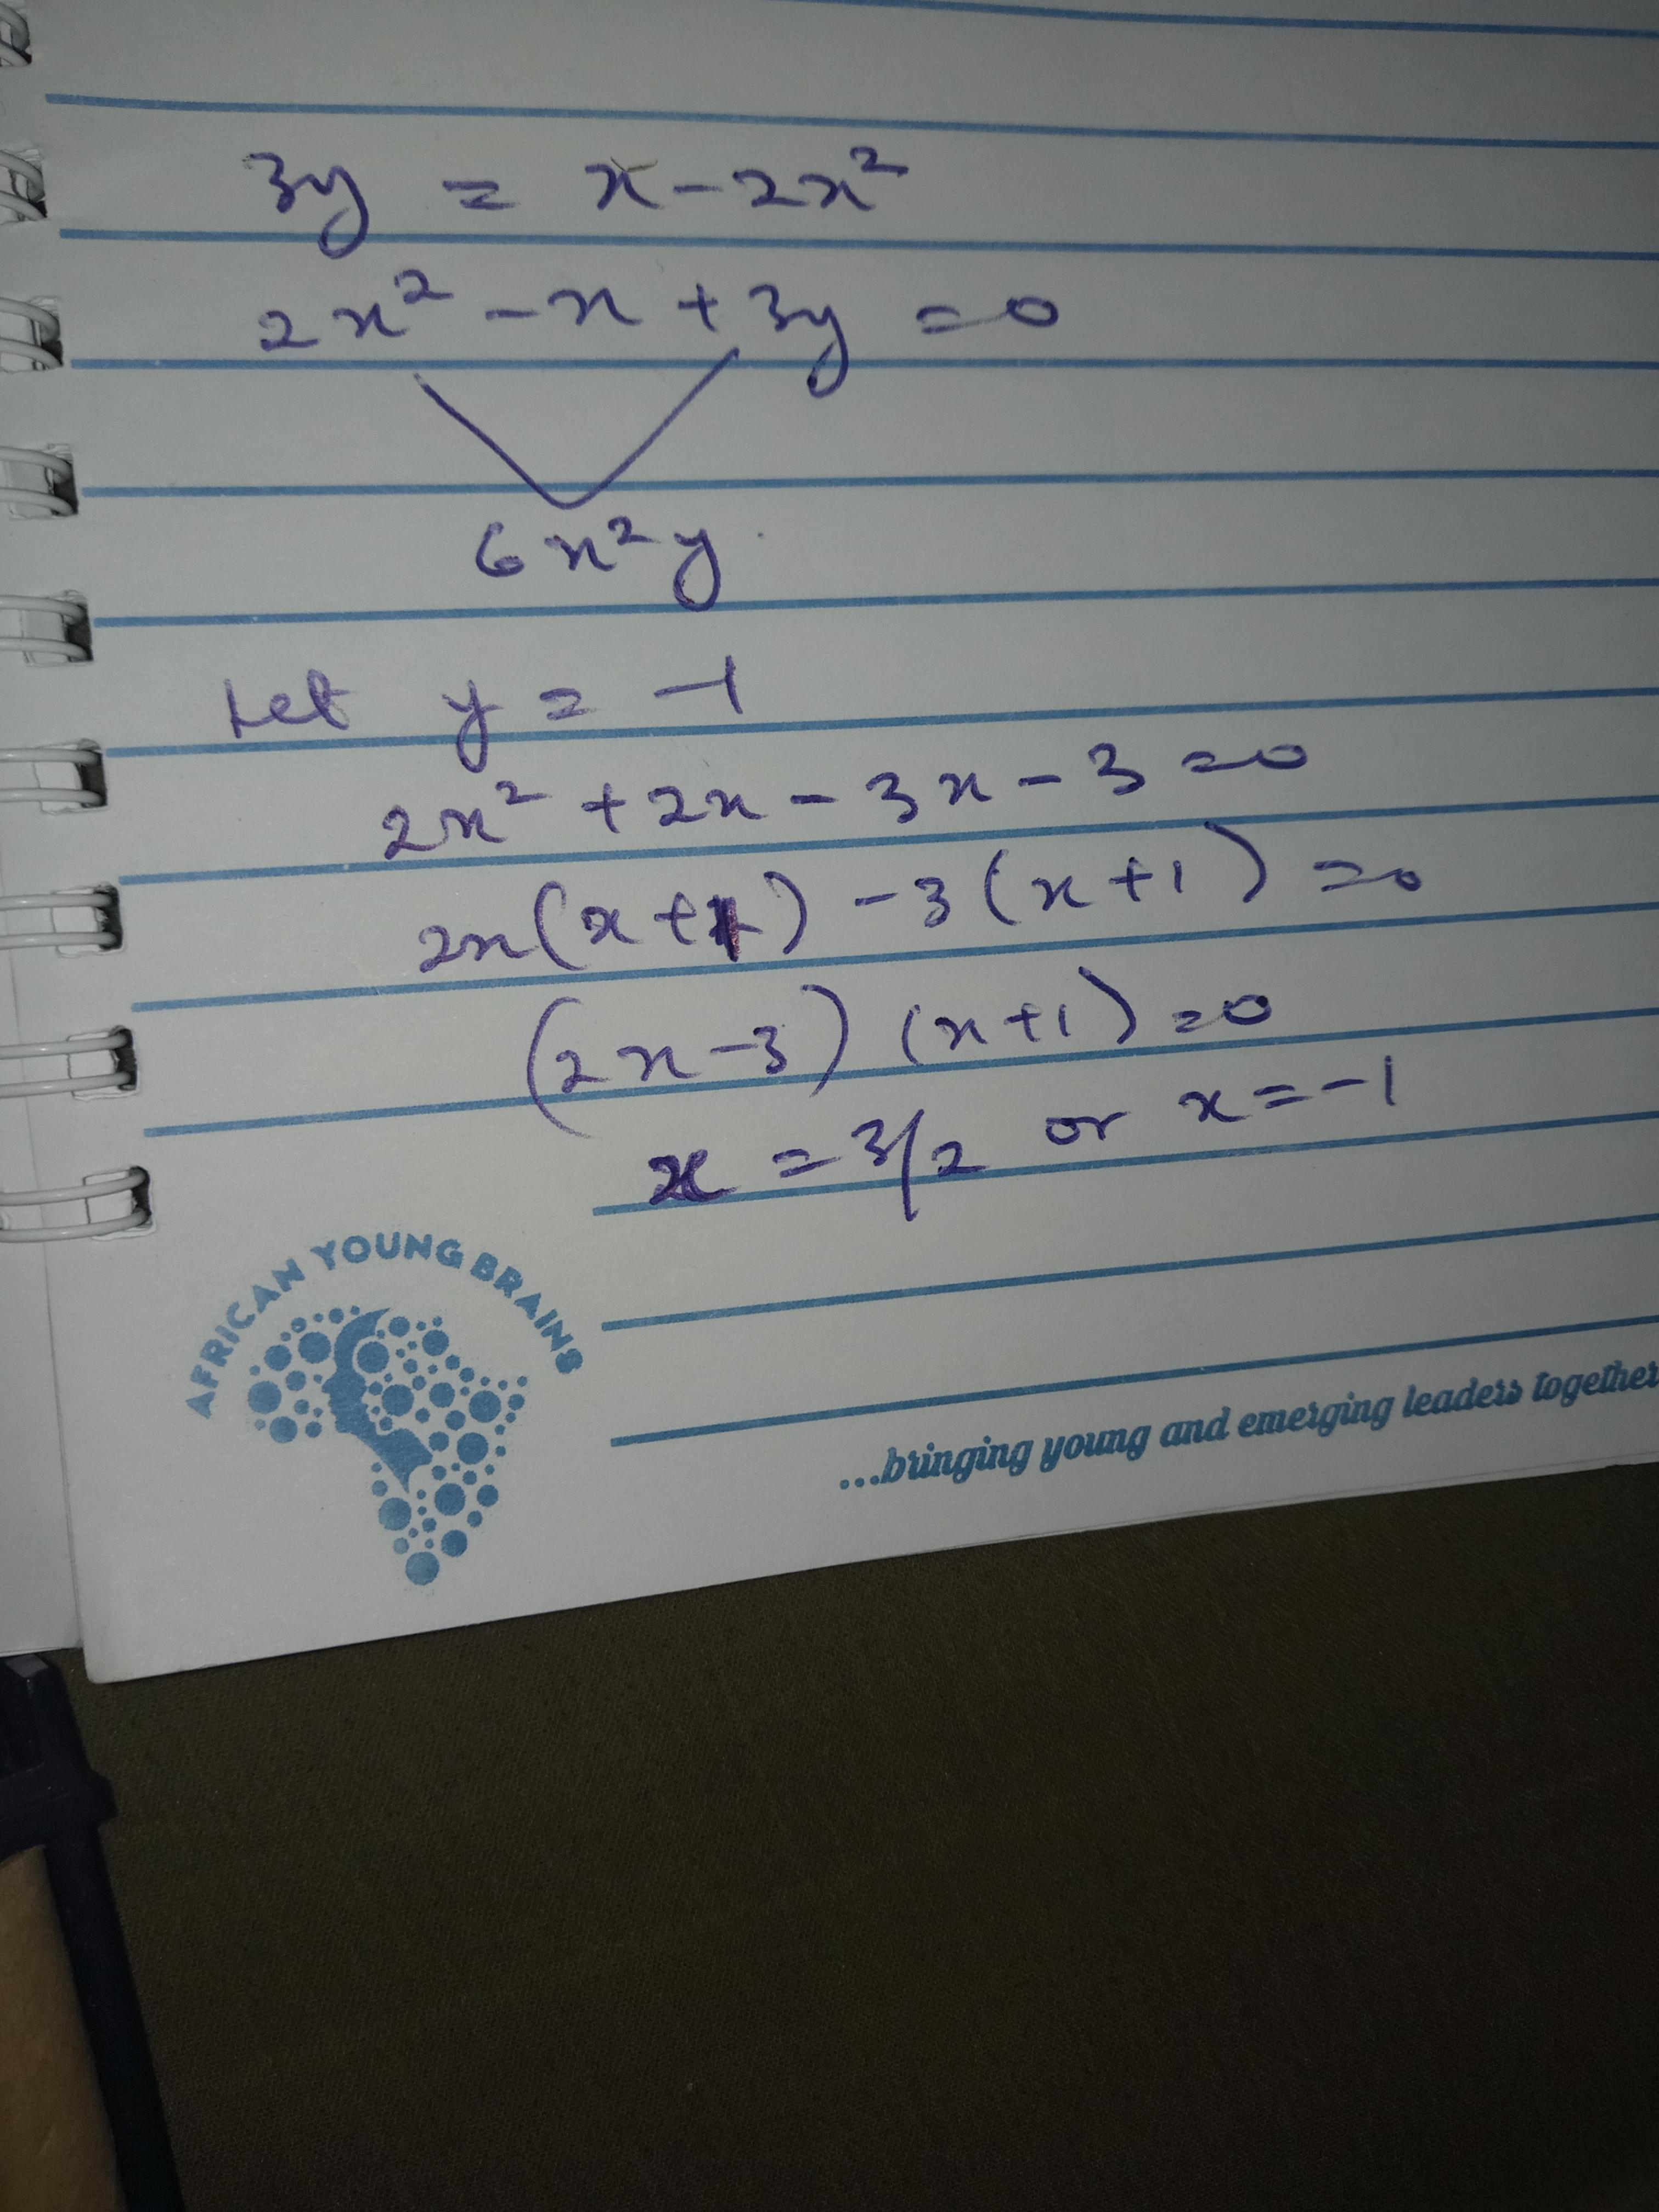 3y = x - 2x²
2x² - x + 3y = 0
6x²y
Let y = -1
2x² + 2x - 3x - 3 = 0
2x(x+1) - 3(x+1) = 0
(2x-3) (x+1) = 0
x = 3/2 or x = -1
AFRICAN YOUNG BRAINS
...bringing young and emerging leaders together